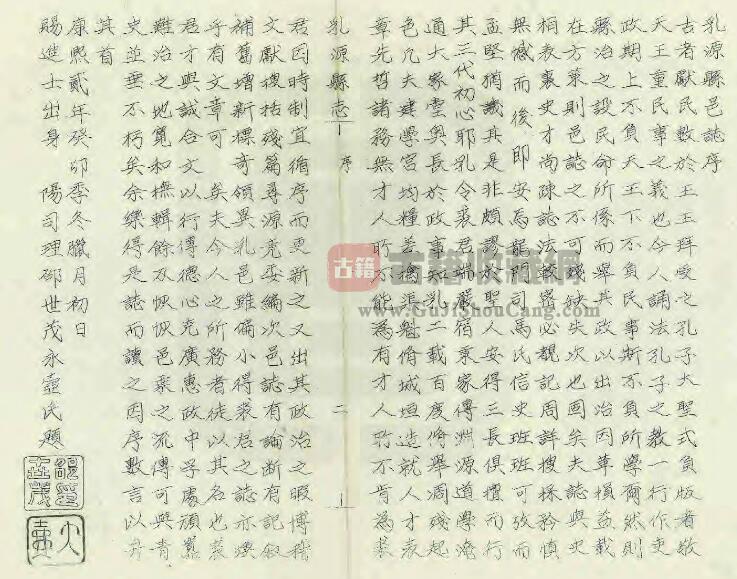 乳源縣邑誌序
古者獻民數於王王拜受之孔子大聖式負版者敬
天王重民事之義也今人誦法孔子之教一行作吏
政期上不負天王下不負民事斯不負所學爾然則
縣治之設民命所係而舉其政以出治因革損益載
在方策則邑誌之不可殘缺失次也固矣夫誌與史
相表裏史才尚疎誌法較密必覩記周詳搜採矜慎
無憾而後即安焉龍門司馬氏信史班班可攷而
孟堅猶譏其是非頗謬於聖人安得三長俱擅而行
其三代初心耶乳令裘君端嚴宿京家傳淵源道學淹
通大家堂奧長於政事知乳二載百度脩舉凋殘起
色凡夫建學宮均糧差擒渠魁脩城垣造就人才表
章先哲諸務無才人所不能為有才人所不肯為裘
乳源縣志 序 二
君因時制宜循序而更新之又出其政治之暇博稽
文獻搜括殘篇尋源竟委編次邑誌有論斷有記敘
補舊增新標奇領異乳邑雖備小得裘君之誌亦渙
乎有文章可
君才與誠合文以行傳德心克廣惠政中孚處頑嚚
難治之地寬和撫輯餘及恢恢邑乘之流傳可與青
史並垂不朽矣余樂得是誌而讀之因序數言以弁
其首
康熙貳年癸卯季冬臘月初日
賜進士出身 陽司理邵世茂永壺氏題
古籍
古籍收藏網
www.GuJiShouCang.com